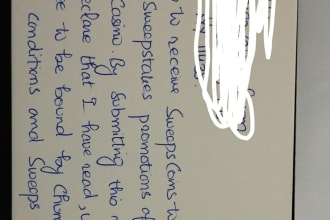 to receive Sweeps Coins to
Sweepstakes promotions of
Casino. By Submitting this
eclare that I have read, u
e to be bound by Chum
conditions and Sweeps